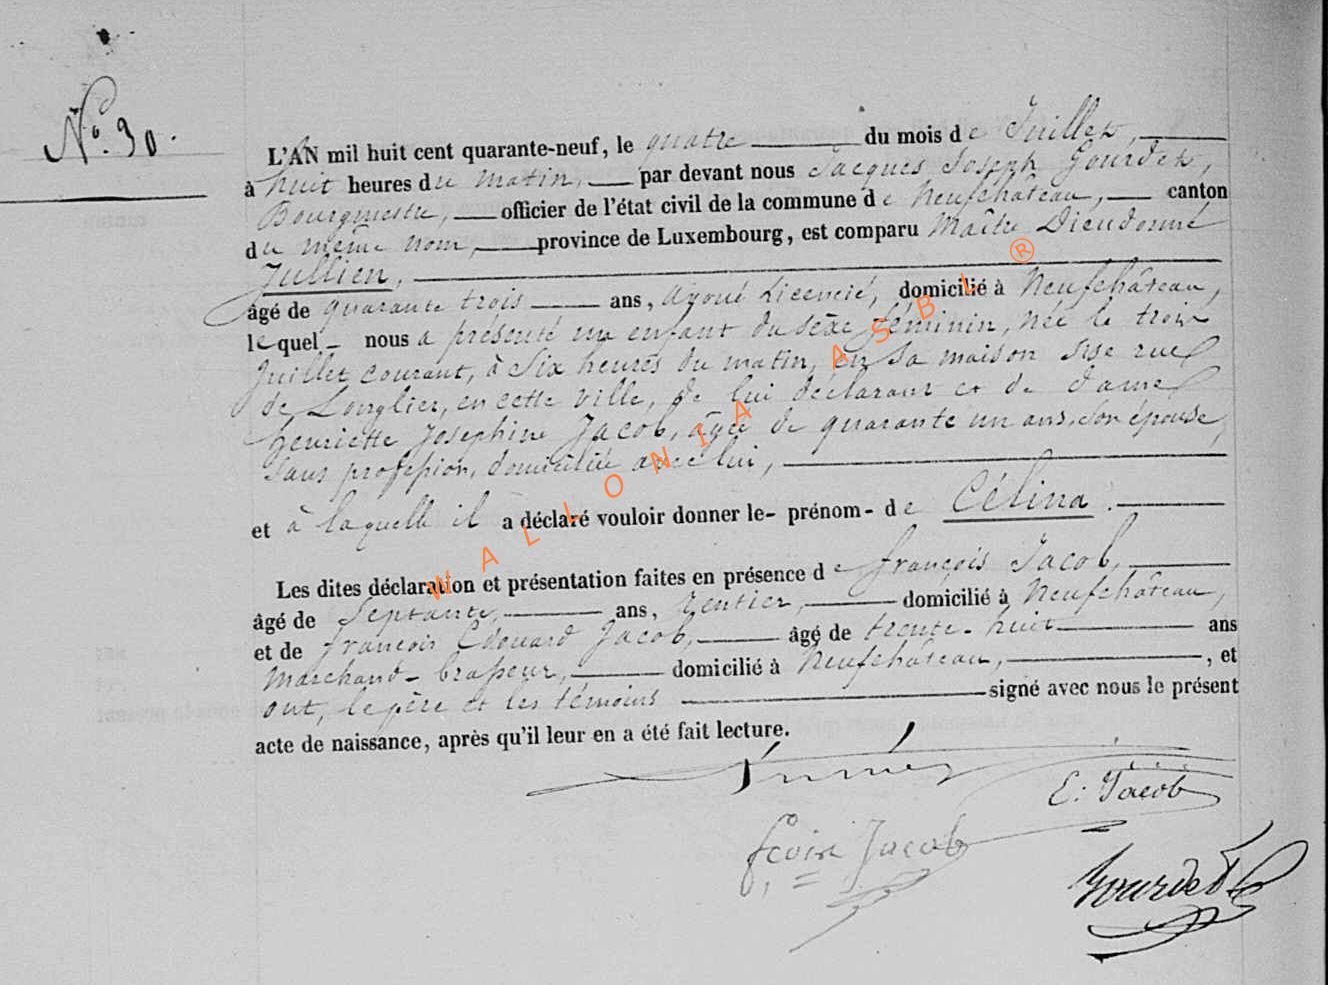 N.º 30.
L'AN mil huit cent quarante-neuf, le quatre du mois de Juillet,
à huit heures du matin, par devant nous Jacques Joseph Gourdet,
Bourgmestre, officier de l'état civil de la commune de Neufchâteau, canton
du même nom, province de Luxembourg, est comparu Maître Dieudonné
Jullien,
âgé de quarante trois ans, avoué Licencié, domicilié à Neufchâteau,
lequel nous a présenté un enfant du sèxe féminin, née le trois
Juillet courant, à Six heures du matin, en sa maison sise rue
de Longlier, en cette ville, de lui déclarant et de dame
henriette Josephine Jacob, âgée de quarante un ans, son épouse,
sans profession, domiciliée avec lui,
et à laquelle il a déclaré vouloir donner le- prénom- de Célina.
Les dites déclaration et présentation faites en présence de françois Jacob,
âgé de Septante, ans, rentier, domicilié à Neufchâteau,
et de françois Edouard Jacob, âgé de trente-huit ans
Marchand-brasseur, domicilié à Neufchâteau, , et
ont, le père et les témoins signé avec nous le présent
acte de naissance, après qu'il leur en a été fait lecture.
E: Jacob
fcois Jacob
Gourdet
WALLONIA ASBL ®